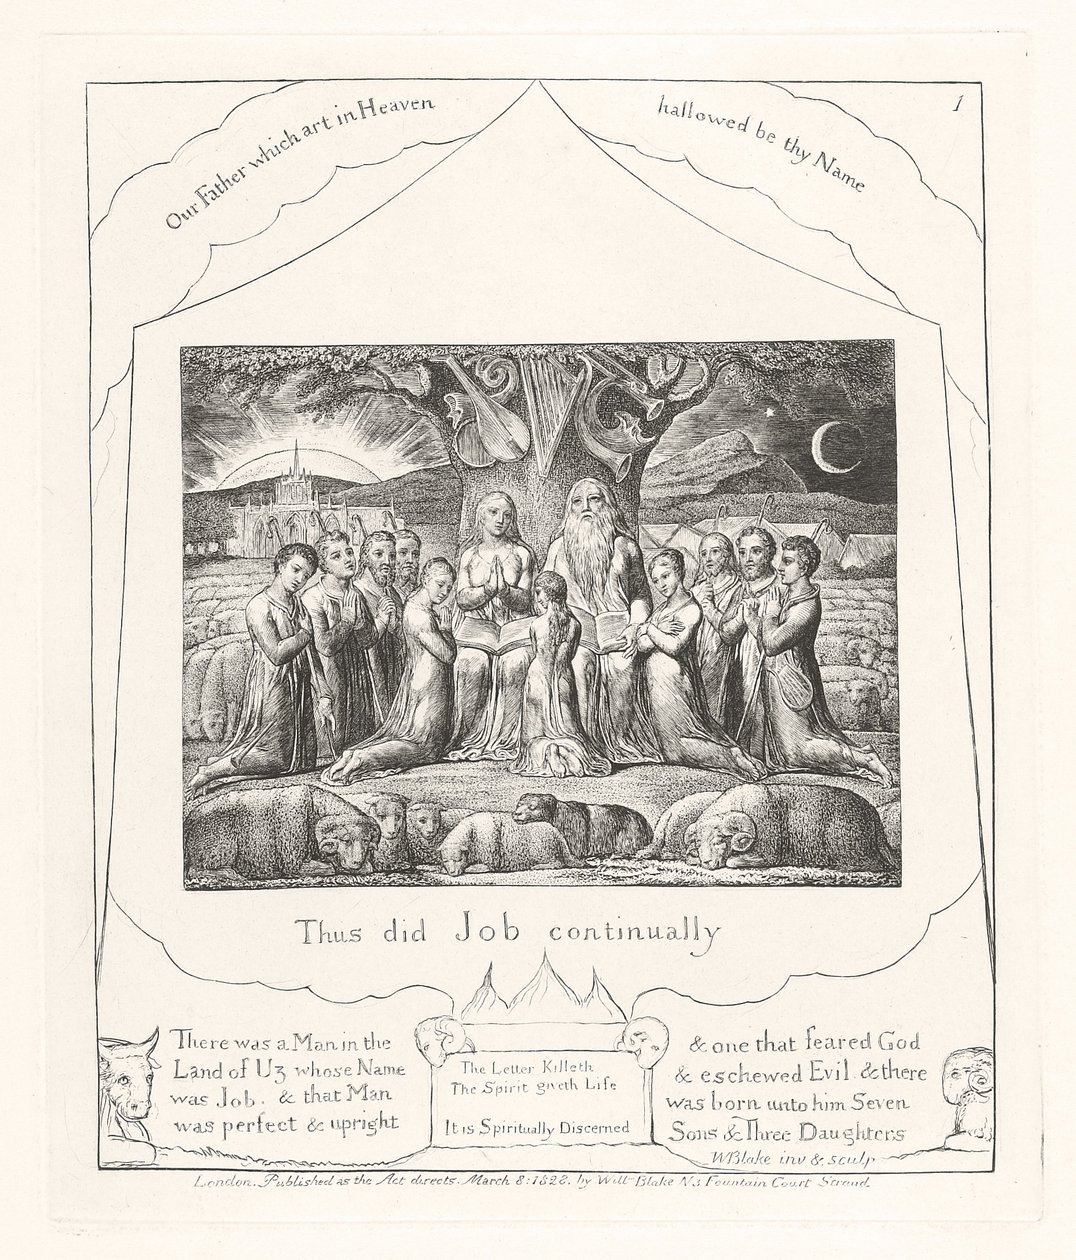 1
Our Father which art in Heaven
hallowed be thy Name
Thus did Job continually
There was a Man in the
Land of Uz whose Name
was Job. & that Man
was perfect & upright
The Letter Killeth
The Spirit giveth Life
It is Spiritually Discerned
& one that feared God
& eschewed Evil & there
was born unto him Seven
Sons & Three Daughters
WBlake inv & sculp
London. Published as the Act directs. March 8: 1828. by Willm Blake N3 Fountain Court Strand